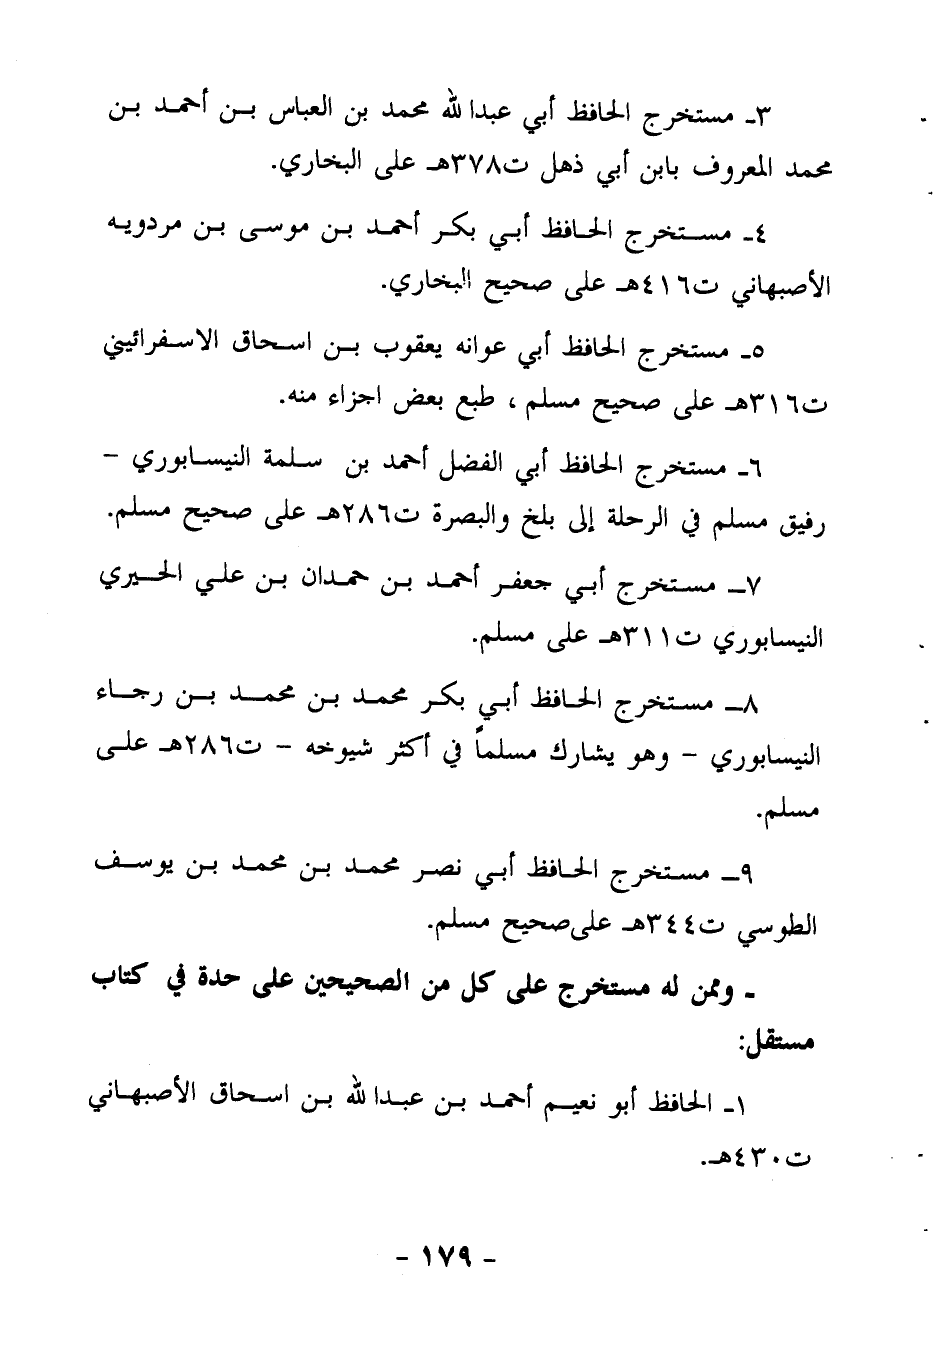 ٣ـ مستخرج الحافظ أبي عبدالله محمد بن العباس بـن أحمـد بن
محمد المعروف بابن أبي ذهل ت٣٧٨هـ على البخاري.
٤ـ مستخرج الحافظ أبي بكر أحمد بن موسى بن مردويه
الأصبهاني ت٤١٦هـ على صحيح البخاري.
٥ـ مستخرج الحافظ أبي عوانه يعقوب بـن اسحاق الاسفرائيني
ت٣١٦هـ على صحيح مسلم ، طبع بعض اجزاء منه.
٦ـ مستخرج الحافظ أبي الفضل أحمد بن سلمة النيسابوري –
رفيق مسلم في الرحلة إلى بلخ والبصرة ت٢٨٦هـ على صحيح مسلم.
٧ـ مستخرج أبي جعفر أحمد بن حمدان بن علي الحيري
النيسابوري ت٣١١هـ على مسلم.
٨ـ مستخرج الحافظ أبي بكر محمد بن محمد بـن رجاء
النيسابوري – وهو يشارك مسلماً في أكثر شيوخه – ت٢٨٦هـ على
مسلم.
٩ـ مستخرج الحافظ أبي نصر محمد بن محمد بن يوسف
الطوسي ت٣٤٤هـ على صحيح مسلم.
ـ وممن له مستخرج على كل من الصحيحين على حدة في كتاب
مستقل:
١ـ الحافظ أبو نعيم أحمد بن عبدالله بن اسحاق الأصبهاني
ت٤٣٠هـ.
- ١٧٩ -